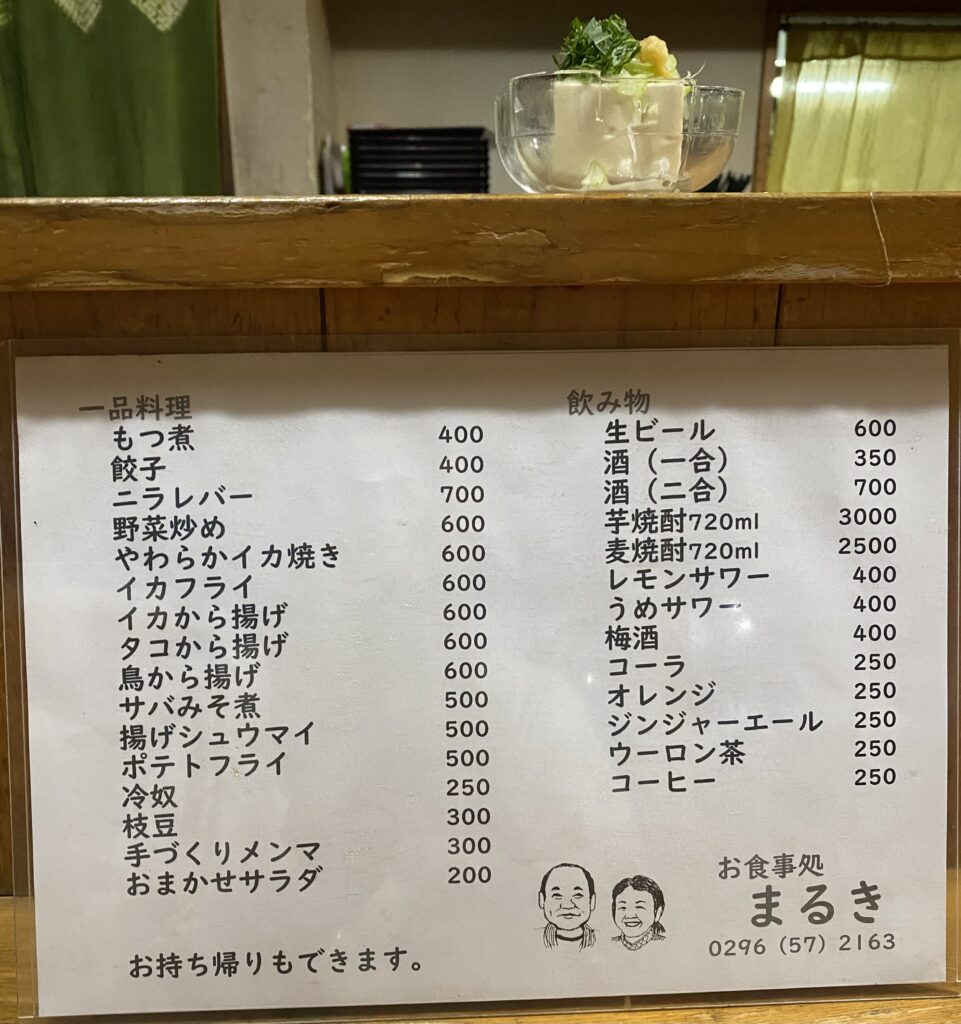 一品料理
もつ煮 400
餃子 400
ニラレバー 700
野菜炒め 600
やわらかイカ焼き 600
イカフライ 600
イカから揚げ 600
タコから揚げ 600
鳥から揚げ 600
サバみそ煮 500
揚げシュウマイ 500
ポテトフライ 500
冷奴 250
枝豆 300
手づくりメンマ 300
おまかせサラダ 200
お持ち帰りもできます。
飲み物
生ビール 600
酒（一合） 350
酒（二合） 700
芋焼酎720ml 3000
麦焼酎720ml 2500
レモンサワー 400
うめサワー 400
梅酒 400
コーラ 250
オレンジ 250
ジンジャーエール 250
ウーロン茶 250
コーヒー 250
お食事処
まるき
0296（57）2163